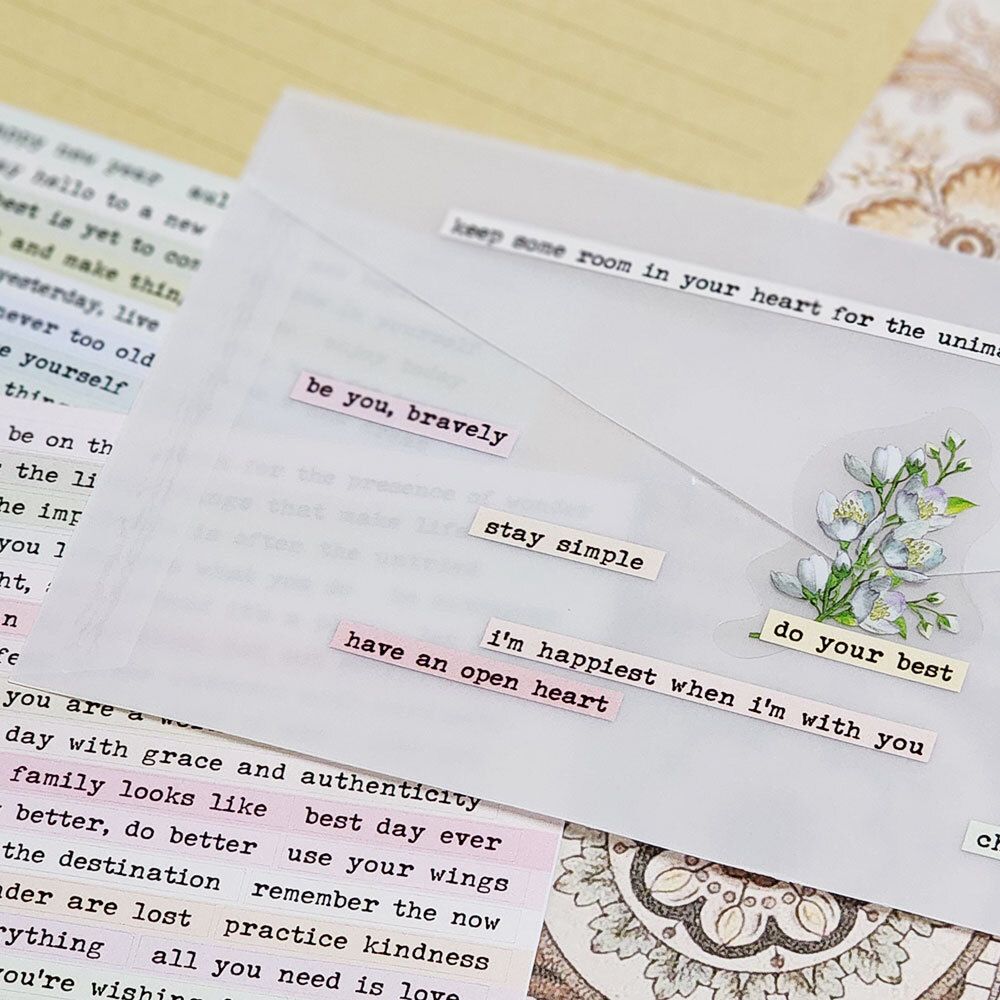 happy new year
say hello to a new
best is yet to com
and make thin
yesterday, live
never too old
e yourself
thing
be on th
the li
he imp
you l
ht,
n
fe
keep some room in your heart for the unima
be you, bravely
stay simple
do your best
i'm happiest when i'm with you
have an open heart
ch
for the presence of wonder
ngs that make life
is after the untried
what you do
you are a wo
day with grace and authenticity
family looks like best day ever
better, do better use your wings
the destination remember the now
nder are lost practice kindness
rything all you need is love
you're wishing